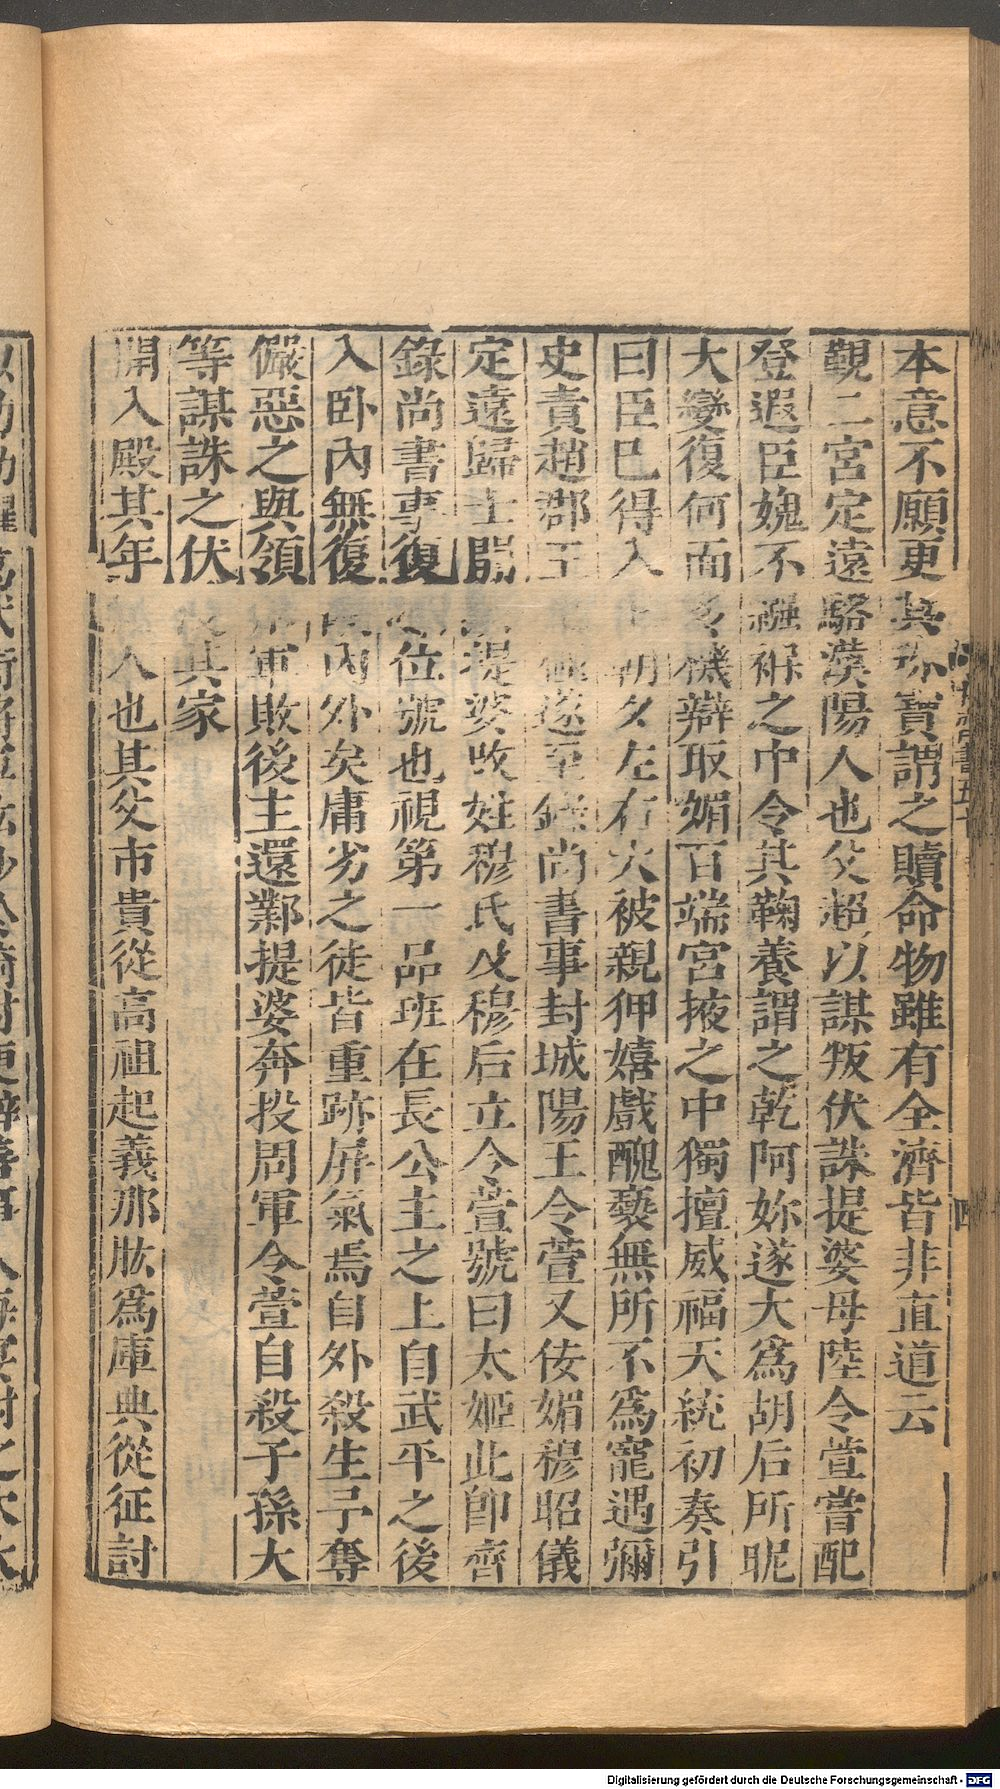 本意不願更其珍寶謂之贖命物雖有全濟皆非直道云
觀二宮定遠駱漢陽人也父超以謀叛伏誅提婆母陸令萱嘗配
登遐臣媿不襁褓之中令其鞠養謂之乾阿妳遂大爲胡后所昵
大變復何面多機辯取媚百端宮掖之中獨擅威福天統初奏引
曰臣已得入朝夕左右大被親狎嬉戲醜褻無所不爲寵遇彌
史責趙郡王遂至錄尚書事封城陽王令萱又佞媚穆昭儀
定遠歸士開提婆改姓穆氏及穆后立令萱號曰太姬此卽齊
錄尚書事復位號也視第一品班在長公主之上自武平之後
入卧內無復內外矣庸劣之徒皆重跡屏氣焉自外殺生予奪
儼惡之與領軍敗後主還鄴提婆奔投周軍令萱自殺子孫大
等謀誅之伏其家
開入殿其年人也其父市貴從高祖起義那肱爲庫典從征討
Digitalisierung gefördert durch die Deutsche Forschungsgemeinschaft - DFG